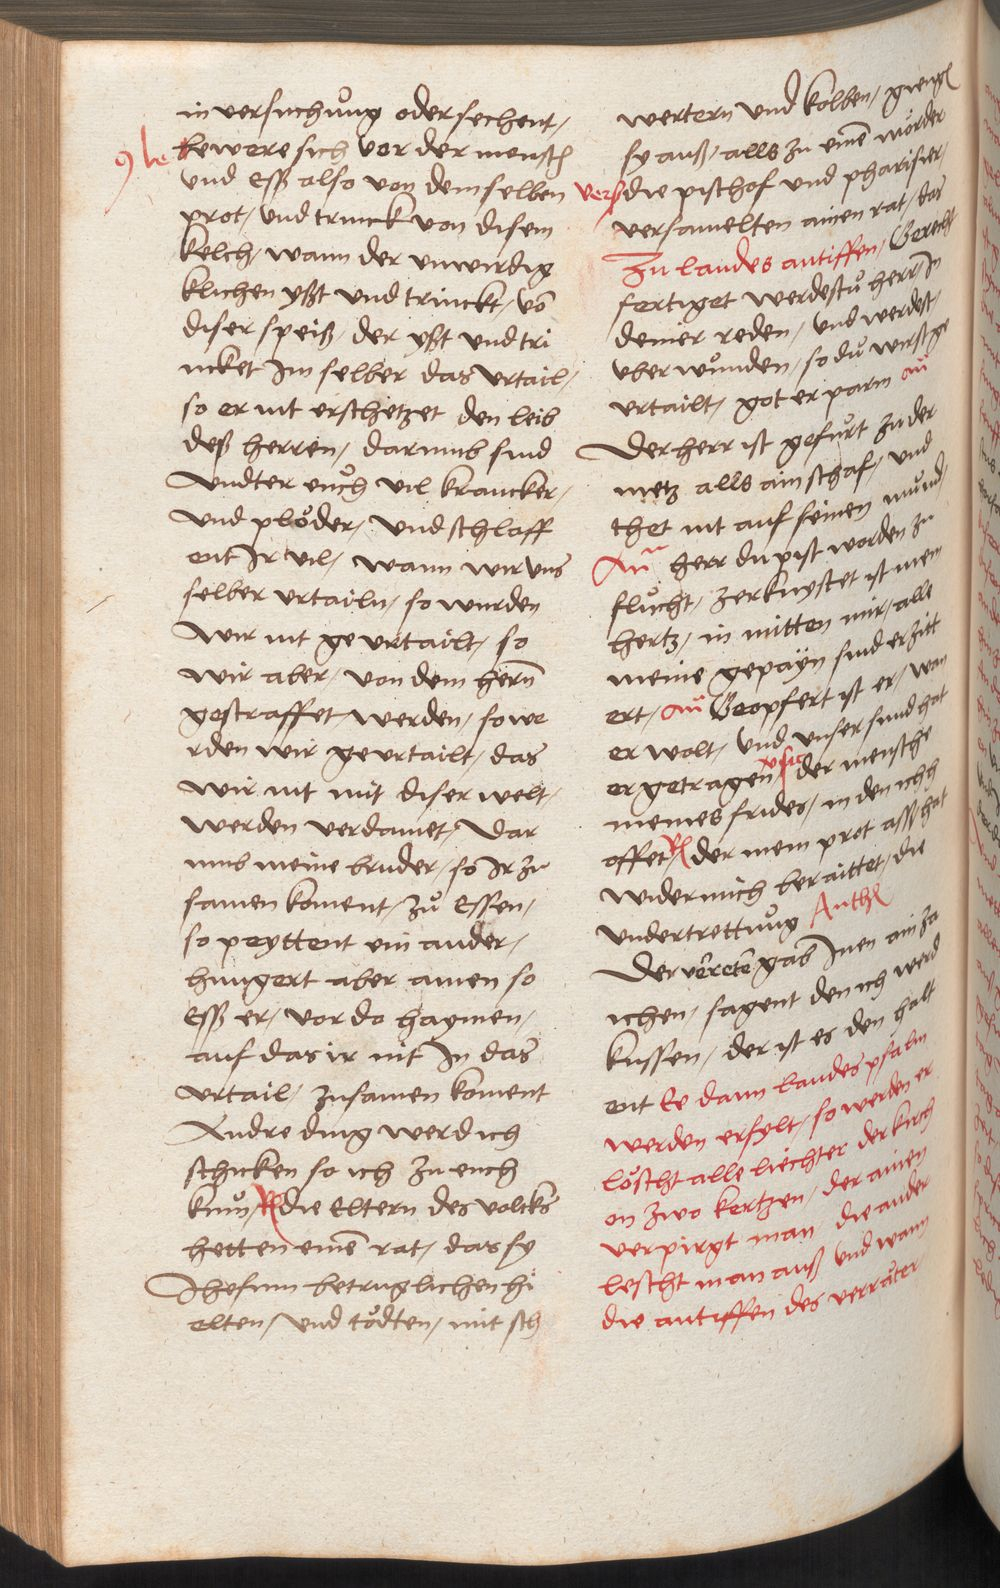 in versuchung oder sechent /
9 le bewere sich vor der mensch
und Eß also von demselben
prot / und trinck von disem
kelch / wann der unwirdig
klichen yßt und trinckt / vō
diser speiß / der yßt und tri
ncket Im selber das urtail /
so er nit erschetzet den leib
deß herren / darumb sind
undter euch vil krancker /
und plöder / und schlaff
ent Ir vil / wann wir uns
selber urtailn / so wurden
wir nit geurtailt / so
wir aber / von dem herrn
gestraffet werden / so we
rden wir geurtailt / das
wir nit mit diser welt /
werden verdamet / Dar
umb meine bruder / so Ir zu
samen koment / zů Essen /
so peyttent ein ander /
hungert aber ainen so
Esß er / vor do haymen /
auf das ir nit In das
urtail / zusamen koment
Andre ding werd ich
schicken so ich zu euch
kum / R die Eltern des volcks
hetten einē rat / das sy
Jhesum betruglichen hi
elten / und tödten / mit sch
wertern und kolben / giengē
sy auß / alls zu einē mörder
vers die pischof und pharisier /
versamelten ainen rat / das
Zu laudes antiffen / Gerecht
fertiget werdestu herr / In
deiner reden / und werdest /
uberwunden / so du wirst ge
urtailt / got erparm aū
Der herr ist gefurt zu der
metz alls ain schaf / und
thet nit auf seinen mund /
Aū herr du pist worden zu
flucht / zerknystet ist mein
hertz / in mitten mir / alle
meine gepayn sind erzitt
ert / aū Geopfert ist er / wan
er wolt / und unser sund hat
er getragen / vsic der mensche
meines frides / in den ich h
offet / R der mein prot ass / hat
wider mich beraittet / die
undertrettung Anth
Der verreter gab Inen ain za
ichen / sagent den ich werd
kussen / der ist es den halt
ent Ee dann laudes psalm
werden erfylt / so werden er
löscht alle liechter der kirch
on zwo kertzen / der ainen
verpirgt man die ander
lescht man auß und wann
die antiffen des verräter